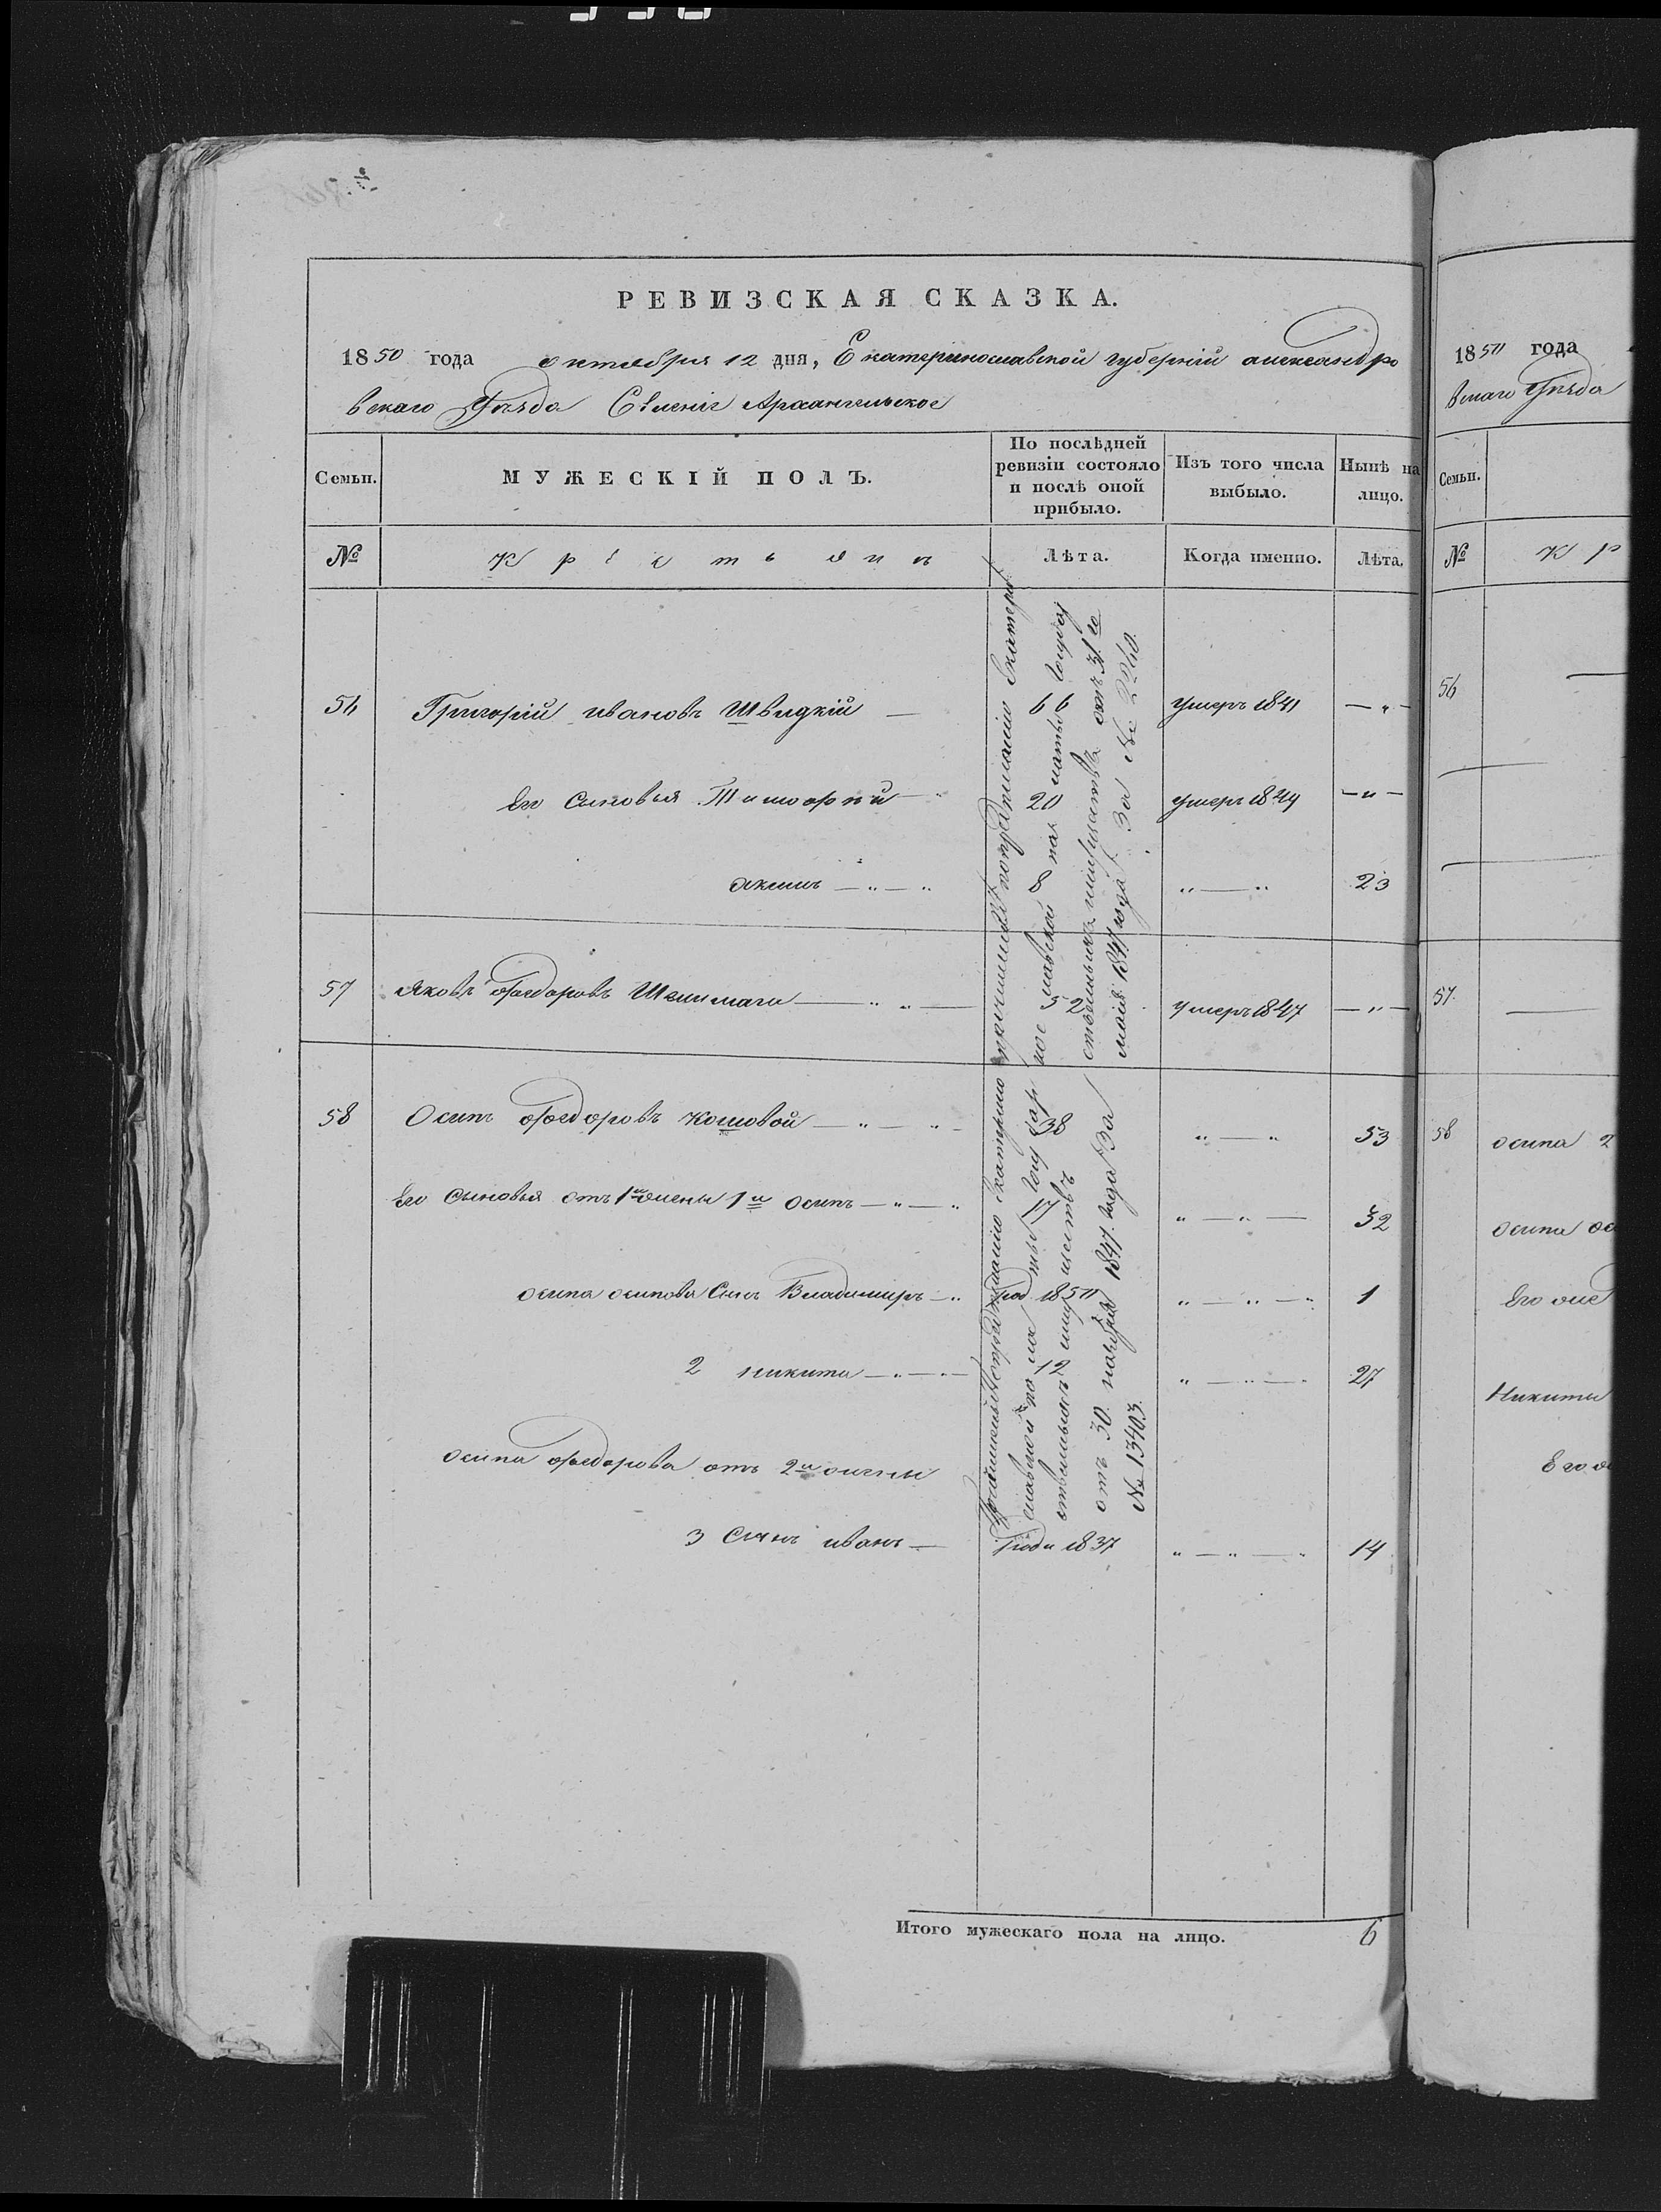 РЕВИЗСКАЯ СКАЗКА.
1850 года октября 12 дня, Екатеринославской губерніи александро
вскаго Уѣзда Селеніе Архангельское
Семьи.
МУЖЕСКІЙ ПОЛЪ.
По послѣдней ревизіи состояло и послѣ оной прибыло.
Изъ того числа выбыло.
Нынѣ на лицо.
№
Крестьянъ
Лѣта.
Когда именно.
Лѣта.
56 Григорій ивановъ Швидкій — 66 умеръ 1841 — " —
Его Сыновья Тимофѣй — " 20 умеръ 1844 — " —
якимъ — " — " 8 " — " 23
57 Яковъ Федоровъ — " " — 52 умеръ 1847 — " —
58 Осипъ Федоровъ Кошовой — " — " — 38 " — " 53
Его Сыновья отъ 1й жены 1й осипъ — " — " 17 " — " — 32
осипа осипова Сынъ Владимиръ — " род 1850 " — " — " 1
2 никита — " — " — 12 " — " — 27
осипа Федорова отъ 2й жены
3 Сынъ иванъ — род 1837 " — " — " 14
нославской палаты государ
ственныхъ имуществъ отъ 31го
мая 1847 года За № 2240.
ственныхъ имуществъ
отъ 30 ноября 1847 года За
№ 13403.
Итого мужескаго пола на лицо. 6
1850 года
вскаго Уѣзда
Семьи.
№
Кр
56
57
58 осипа 2
осипа ос
Его
Никиты
Его